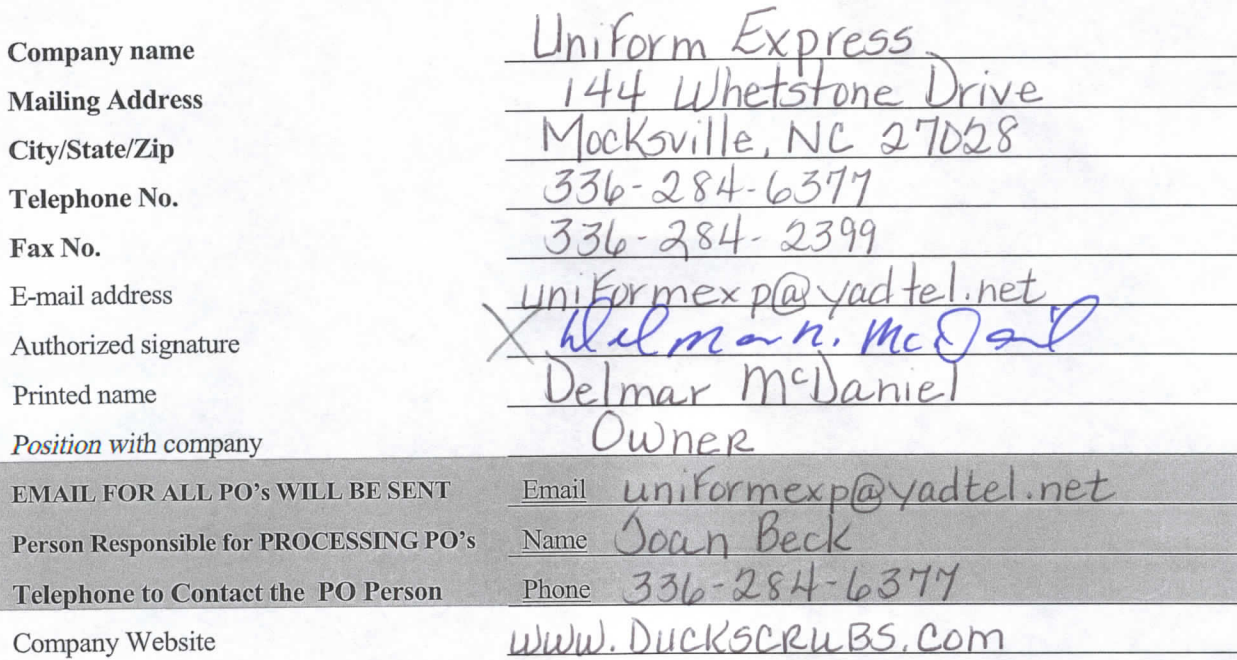 Company name Uniform Express
Mailing Address 144 Whetstone Drive
City/State/Zip Mocksville, NC 27028
Telephone No. 336-284-6377
Fax No. 336-284-2399
E-mail address uniformexp@yadtel.net
Authorized signature X Delmar N. McDaniel
Printed name Delmar McDaniel
Position with company Owner
EMAIL FOR ALL PO's WILL BE SENT Email uniformexp@yadtel.net
Person Responsible for PROCESSING PO's Name Joan Beck
Telephone to Contact the PO Person Phone 336-284-6377
Company Website www.DuckscRuBs.com